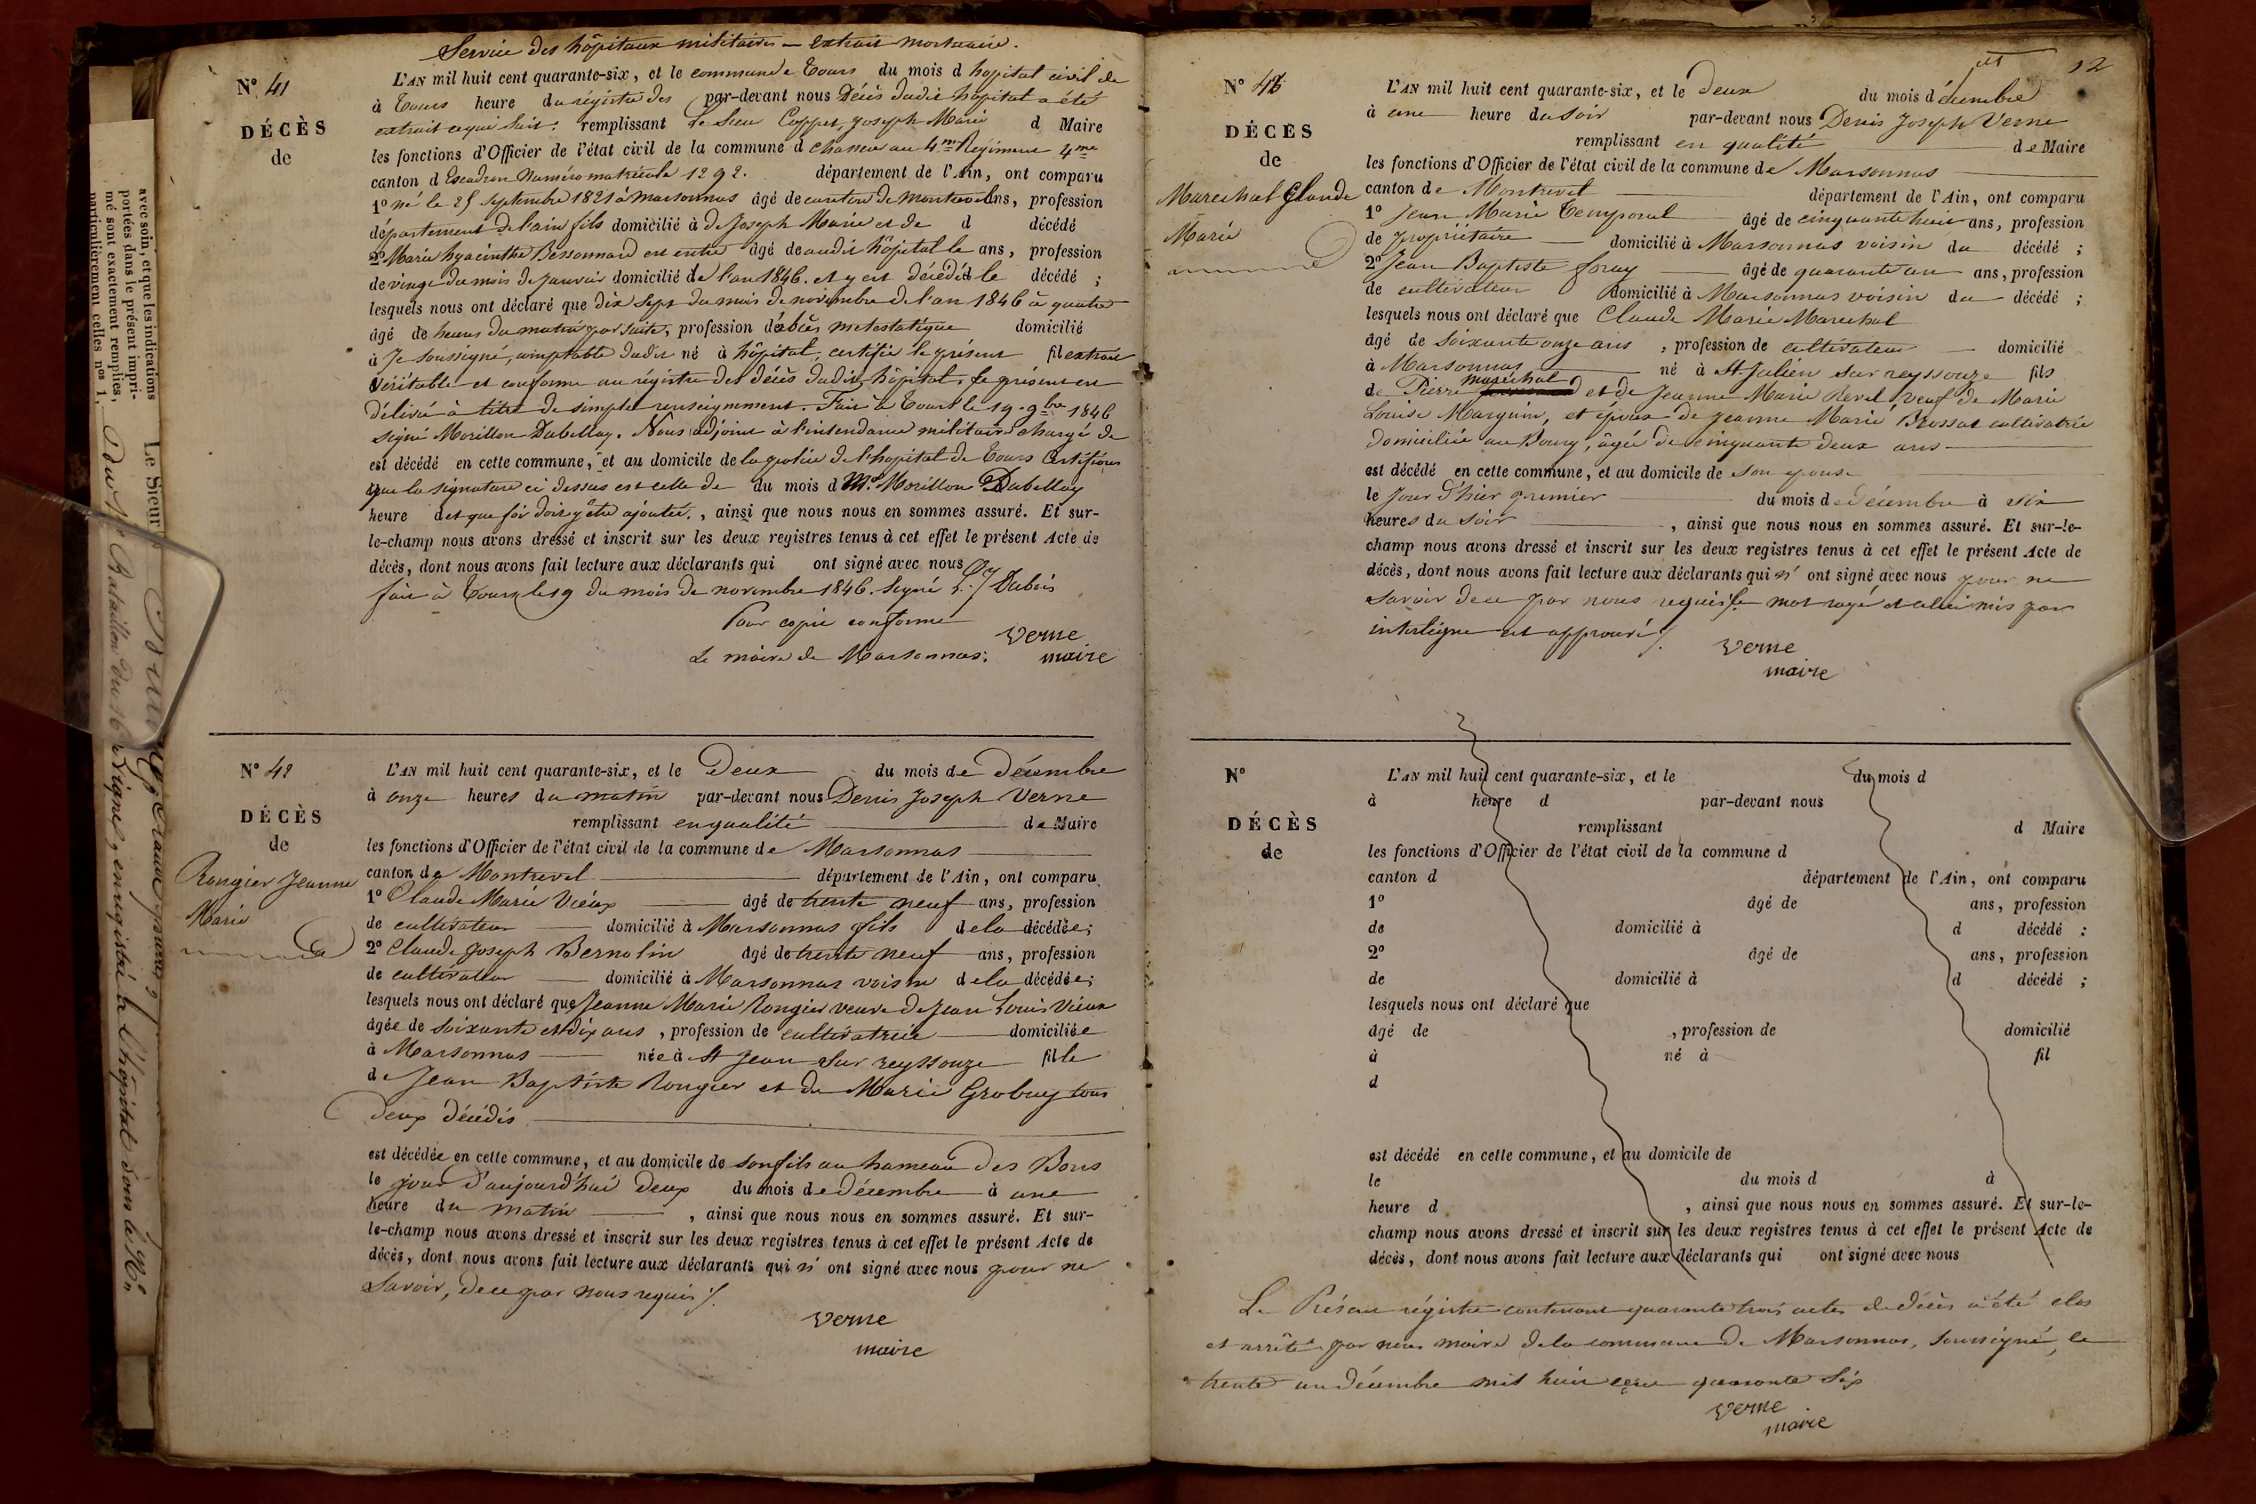 Service des hôpitaux militaires — extrait mortuaire.
N° 41
DÉCÈS
de
L'AN mil huit cent quarante-six, et le commune de Tours du mois d hopital civil de
à Tours heure du régistre des par-devant nous Décès dudit hôpital a été
extrait ce qui suit : remplissant Le Sieur Coppet, Joseph Marie d Maire
les fonctions d'Officier de l'état civil de la commune d chasseur au 4me Régiment 4me
canton d Escadron Numéro matricule 1292. département de l'Ain, ont comparu
1° né le 25 septembre 1821 à marsonnas âgé de canton de montrevel ans, profession
département de l'ain fils domicilié à de Joseph Marie et de d décédé
2° Marie hyacinthe Bessonnard est entré âgé de audit hôpital le ans, profession
de vingt du mois de janvier domicilié de l'an 1846. et y est décédé le décédé ;
lesquels nous ont déclaré que dix sept du mois de novembre de l'an 1846 à quatre
âgé de heures du matin par suite, profession d'abcès métastatique domicilié
à Je soussigné, comptable dudit né à hôpital, certifie le présent fil extrait
véritable et conforme au régistre des décès dudit hôpital. Le présent en
délivré à titre de simple renseignement. Fait à Tours le 19. 9bre 1846
signé Morillon Dubellay. Nous adjoint à l'intendance militaire chargé de
est décédé en cette commune, et au domicile de la police de l'hopital de Tours Certifions
que la signature ci dessus est celle de du mois d Mr. Morillon Dubellay
heure d et que foi doit y être ajoutée., ainsi que nous nous en sommes assuré. Et sur-
le-champ nous avons dressé et inscrit sur les deux registres tenus à cet effet le présent Acte de
décès, dont nous avons fait lecture aux déclarants qui ont signé avec nous
fait à Tours le 19 du mois de novembre 1846. signé Dubois
Pour copie conforme
Le maire de Marsonnas: Verne
maire
N° 42
DÉCÈS
de
Rongier Jeanne
Marie
L'AN mil huit cent quarante-six, et le Deux du mois de Décembre
à onze heures du matin par-devant nous Denis Joseph Verne
remplissant en qualité de Maire
les fonctions d'Officier de l'état civil de la commune de Marsonnas
canton de Montrevel département de l'Ain, ont comparu
1° Claude Marie Vieux âgé de trente neuf ans, profession
de cultivateur domicilié à Marsonnas fils de la décédée;
2° Claude Joseph Bernolin âgé de trente neuf ans, profession
de cultivateur domicilié à Marsonnas voisin de la décédée;
lesquels nous ont déclaré que Jeanne Marie Rongier veuve de Jean Louis Vieux
âgée de soixante et dix ans, profession de cultivatrice domiciliée
à Marsonnas née à St Jean sur reyssouze fille
de Jean Baptiste Rongier et de Marie Grobuy tous
deux décédés
est décédée en cette commune, et au domicile de son fils au hameau des Bons
le jour d'aujourd'hui deux du mois de décembre à une
heure du matin, ainsi que nous nous en sommes assuré. Et sur-
le-champ nous avons dressé et inscrit sur les deux registres tenus à cet effet le présent Acte de
décès, dont nous avons fait lecture aux déclarants qui n' ont signé avec nous pour ne
savoir, de ce par nous requis /.
Verne
maire
12
N° 43
DÉCÈS
de
Marechal Claude
Marie
L'AN mil huit cent quarante-six, et le deux du mois d décembre
à une heure du soir par-devant nous Denis Joseph Verne
remplissant en qualité de Maire
les fonctions d'Officier de l'état civil de la commune de Marsonnas
canton de Montrevel département de l'Ain, ont comparu
1° Jean Marie Temporal âgé de cinquante huit ans, profession
de propriétaire domicilié à Marsonnas voisin du décédé ;
2° Jean Baptiste foray âgé de quarante un ans, profession
de cultivateur domicilié à Marsonnas voisin du décédé ;
lesquels nous ont déclaré que Claude Marie Marechal
âgé de soixante onze ans, profession de cultivateur domicilié
à Marsonnas né à St Julien sur reyssouze fils
de Pierre maréchal et de Jeanne Marie Revel veuf de Marie
Louise Marguin, et époux de Jeanne Marie Brossat cultivatrice
domiciliée au Bourg, âgée de cinquante deux ans
est décédé en cette commune, et au domicile de son épouse
le jour d'hier premier du mois de décembre à six
heures du soir, ainsi que nous nous en sommes assuré. Et sur-le-
champ nous avons dressé et inscrit sur les deux registres tenus à cet effet le présent Acte de
décès, dont nous avons fait lecture aux déclarants qui n' ont signé avec nous pour ne
savoir de ce par nous requis. le mot rayé et celui mis par
interligne est approuvé /.
Verne
maire
N°
DÉCÈS
de
L'AN mil huit cent quarante-six, et le du mois d
à heure d par-devant nous
remplissant d Maire
les fonctions d'Officier de l'état civil de la commune d
canton d département de l'Ain, ont comparu
1° âgé de ans, profession
de domicilié à d décédé ;
2° âgé de ans, profession
de domicilié à d décédé ;
lesquels nous ont déclaré que
âgé de , profession de domicilié
à né à fil
d
est décédé en cette commune, et au domicile de
le du mois d à
heure d , ainsi que nous nous en sommes assuré. Et sur-le-
champ nous avons dressé et inscrit sur les deux registres tenus à cet effet le présent Acte de
décès, dont nous avons fait lecture aux déclarants qui ont signé avec nous
Le Présent régistre contenant quarante trois actes de décès a été clos
et arrêté par nous maire de la commune de Marsonnas, soussigné, le
trente un décembre mil huit cent quarante six
Verne
maire
avec soin, et que les indications
portées dans le présent impri-
mé sont exactement remplies,
particulièrement celles nos 1,
Le Sieur
Bataillon du 16
Ligne, enrégistré à l'hôpital sous le No